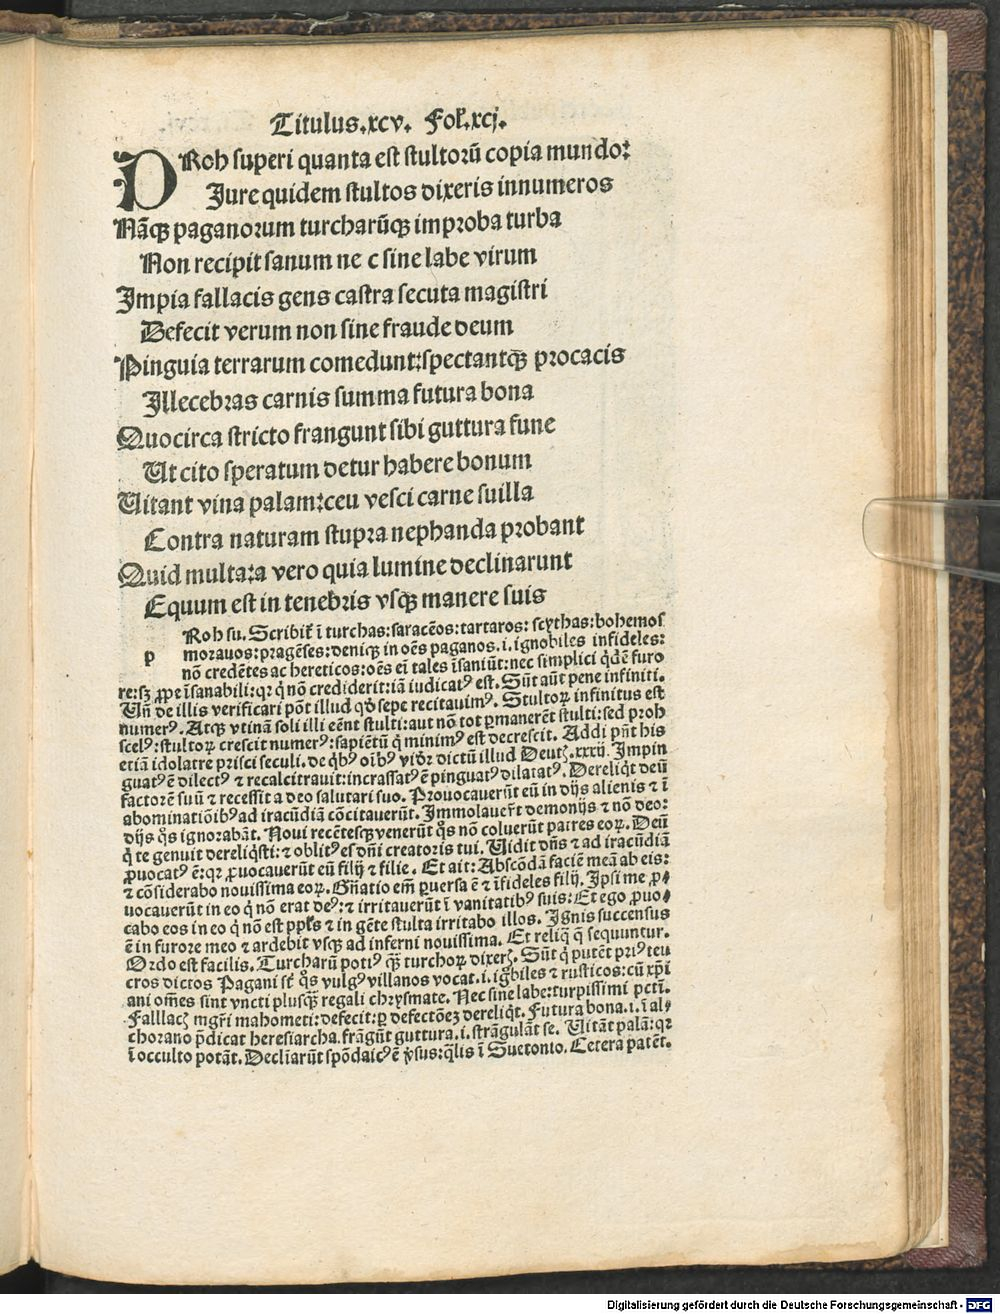 Titulus.xcv. Fol̃.xcj.
PRoh superi quanta est stultorũ copia mundo:
Jure quidem stultos dixeris innumeros
Nãqꝫ paganorum turcharũqꝫ improba turba
Non recipit sanum ne c sine labe virum
Impia fallacis gens castra secuta magistri
Defecit verum non sine fraude deum
Pinguia terrarum comedunt:spectantqꝫ procacis
Illecebras carnis summa futura bona
Quocirca stricto frangunt sibi guttura fune
Ut cito speratum detur habere bonum
Uitant vina palam:ceu vesci carne suilla
Contra naturam stupra nephanda probant
Quid multa:a vero quia lumine declinarunt
Equum est in tenebris vsqꝫ manere suis
p Roh su. Scribit̃ ĩ turchas:saracẽos:tartaros: scythas:bohemos
morauos:pragẽses:deniqꝫ in oẽs paganos.i.ignobiles infideles:
nõ credẽtes ac hereticos:oẽs eĩ tales ĩsaniũt:nec simplici q̇dẽ furo
re:sꝫ ꝓpe ĩsanabili:qꝛ q̇ nõ crediderit:iã iudicatꝰ est. Sũt aũt pene infiniti.
Uñ de illis verificari põt illud qđ sepe recitauimꝰ. Stultoꝝ infinitus est
numerꝰ. Atqꝫ vtinã soli illi eẽnt stulti:aut nõ tot ꝑmanerẽt stulti:sed proh
scelꝰ:stultoꝝ crescit numerꝰ:sapiẽtũ q̇ minimꝰ est decrescit. Addi pñt his
etiã idolatre prisci seculi.de q̇bꝰ oĩbꝰ vidr̃ dictũ illud Deutꝫ.xxxij. Impin
guatꝰ ẽ dilectꝰ ⁊ recalcitrauit:incrassatꝰ ẽ pinguatꝰ dilatatꝰ. Dereliq̇t deũ
factorẽ suũ ⁊ recessit a deo salutari suo. Prouocauerũt eũ in dijs alienis ⁊ ĩ
abominatiõibꝰ ad iracũdiã cõcitauerũt. Immolauer̃t demonijs ⁊ nõ deo:
dijs q̇s ignorabãt. Noui recẽtesqꝫ venerũt q̇s nõ coluerũt patres eoꝝ. Deũ
q̇ te genuit dereliq̇sti:⁊ oblitꝰ es dñi creatoris tui. Uidit dñs ⁊ ad iracũdiã
ꝓuocatꝰ ẽ:qꝛ ꝓuocauerũt eũ filij ⁊ filie. Et ait:Abscõdã faciẽ meã ab eis:
⁊ cõsiderabo nouissima eoꝝ. Gñatio em̃ ꝑuersa ẽ ⁊ ĩfideles filij. Ipsi me ꝓ⸗
uocauerũt in eo q̇ nõ erat deꝰ:⁊ irritauerũt ĩ vanitatibꝰ suis:Et ego ꝓuo⸗
cabo eos in eo q̇ nõ est ppl̃s ⁊ in gẽte stulta irritabo illos. Ignis succensus
ẽ in furore meo ⁊ ardebit vsqꝫ ad inferni nouissima. Et reliq̃ q̃ sequuntur.
Ordo est facilis. Turcharũ potiꝰ q̃ꝫ turchoꝝ dixerꝫ. Sũt q̇ putẽt priꝰ teu
cros dictos Pagani st̃ q̇s vulgꝰ villanos vocat.i.ignobiles ⁊ rusticos:cũ xp̃i
ani om̃es sint vncti plusq̃ꝫ regali chrysmate. Nec sine labe:turpissimi pctĩ.
Falllacꝫ mgr̃i mahometi:defecit:ꝑ defectõeꝫ dereliq̇t. Futura bona.i.ĩ al⸗
chorano p̃dicat heresiarcha.frãgũt guttura.i.strãgulãt se. Uitãt palã:qꝛ
ĩ occulto potãt. Declĩarũt spõdaicꝰ ẽ ṽsus:q̃lis ĩ Suetonio. Cetera patẽt.
Digitalisierung gefördert durch die Deutsche Forschungsgemeinschaft - DFG